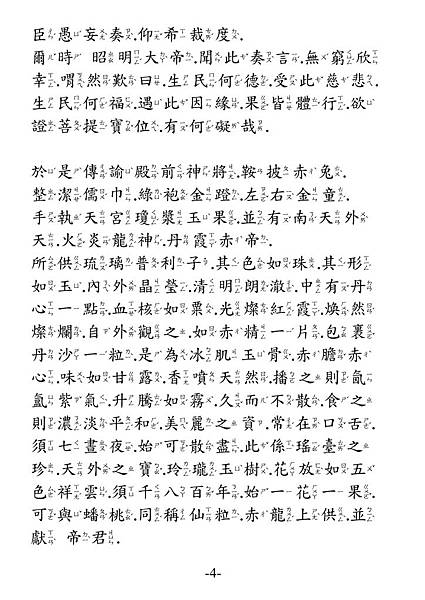 臣愚妄奏.仰希裁度.
爾時 昭明大帝.聞此奏言.無窮欣
幸.喟然歎曰.生民何德.受此慈悲.
生民何福.遇此因緣.果皆體行.欲
證菩提寶位.有何礙哉.
於是傳諭殿前神將.鞍披赤兔.
整潔儒巾.綠袍金蹬.左右金童.
手執天宮瓊漿玉果.並有南天外
天.火炎龍神.丹霞赤帝.
所供琉璃普利子.其色如珠.其形
如玉.內外晶瑩.清明朗澈.中有丹
心一點.血核如粟.光燦紅霞.煥然
燦爛.自外觀之.如赤精一片.包裹
丹沙一粒.是為冰肌玉骨.赤膽赤
心.味如甘露.香噴天然.播之則氤
氳紫氣.升騰如霧.久而不散.食之
則濃淡平和.美麗之資.常在口舌.
須七晝夜.始可散盡.此係瑤臺之
珍.天外之寶.玲瓏玉樹.花放如五
色祥雲.須千八百年.始一花一果.
可與蟠桃.同稱仙粒.赤龍上供.並
獻 帝君.
-4-